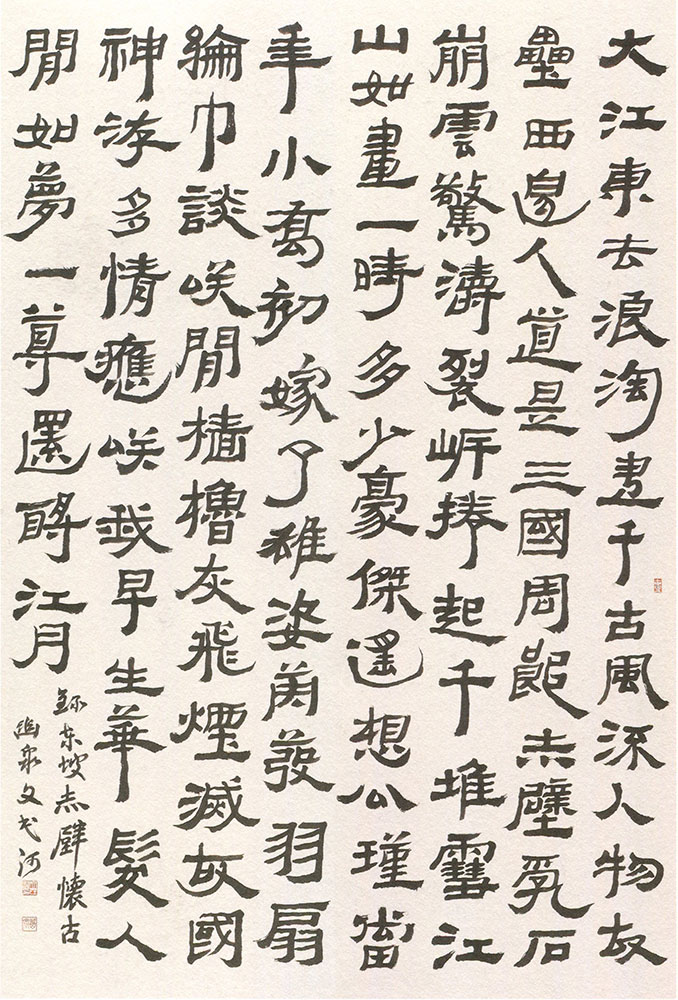 大江東去浪淘盡千古風流人物故
壘西邊人道是三國周郎赤壁亂石
崩雲驚濤裂岸捲起千堆雪江
山如畫一時多少豪傑遙想公瑾當
年小喬初嫁了雄姿英發羽扇
綸巾談笑間檣櫓灰飛煙滅故國
神游多情應笑我早生華髮人
間如夢一尊還酹江月
東坡赤壁懷古